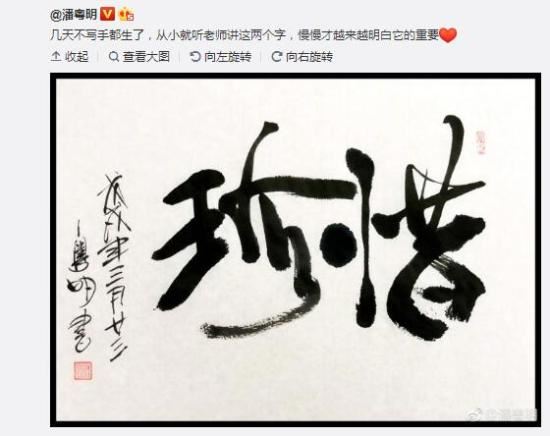 @潘粤明
几天不写手都生了，从小就听老师讲这两个字，慢慢才越来越明白它的重要❤
收起 查看大图 向左旋转 向右旋转
珍惜
戊戌年三月廿三
粤明书
@潘粤明